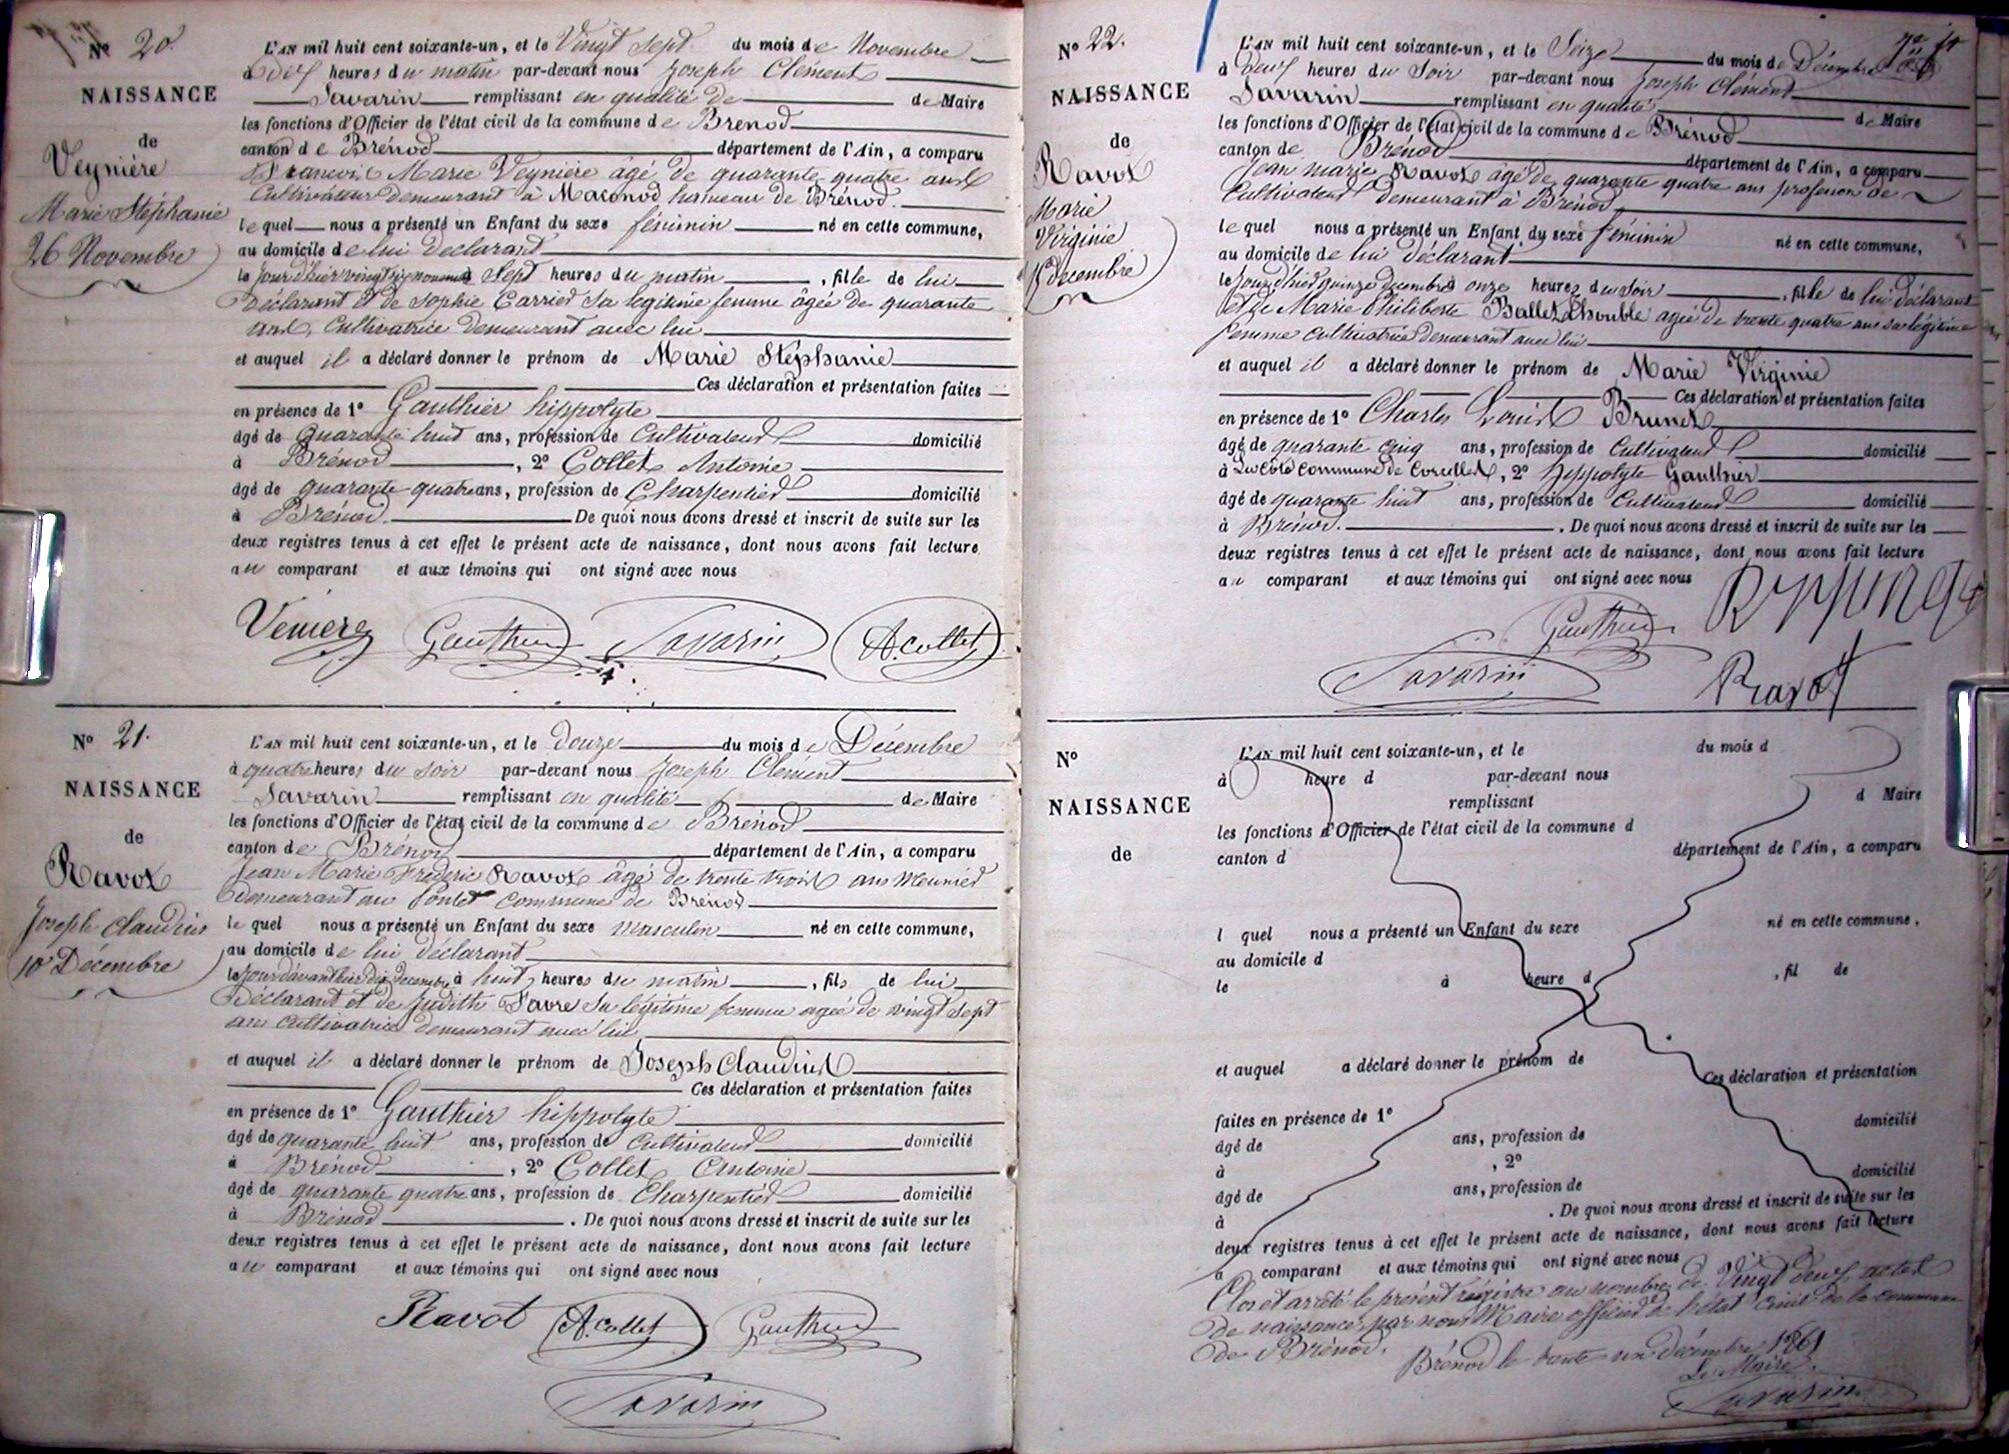 Nº 20.
NAISSANCE
de
Veynière
Marie Stéphanie
26 Novembre
L'AN mil huit cent soixante-un, et le Vingt sept du mois de Novembre
à dix heures du matin par-devant nous Joseph Clément
Savarin remplissant en qualité de de Maire
les fonctions d'Officier de l'état civil de la commune de Brénod
canton de Brénod département de l'Ain, a comparu
François Marie Veynière âgé de quarante quatre ans
Cultivateur demeurant à Maconod hameau de Brénod.
lequel nous a présenté un Enfant du sexe féminin né en cette commune,
au domicile de lui déclarant
le jour d'hier vingt six novembre à sept heures du matin, fille de lui
déclarant et de Sophie Carrier sa légitime femme âgée de quarante
ans, cultivatrice demeurant avec lui
et auquel il a déclaré donner le prénom de Marie Stéphanie
Ces déclaration et présentation faites
en présence de 1º Gauthier hippolyte
âgé de quarante huit ans, profession de Cultivateur domicilié
à Brénod, 2º Collet Antoine
âgé de quarante quatre ans, profession de Charpentier domicilié
à Brénod. De quoi nous avons dressé et inscrit de suite sur les
deux registres tenus à cet effet le présent acte de naissance, dont nous avons fait lecture
au comparant et aux témoins qui ont signé avec nous
Veniere Gauthier Savarin A. Collet
Nº 21.
NAISSANCE
de
Ravot
Joseph Claudius
10 Décembre
L'AN mil huit cent soixante-un, et le douze du mois de Décembre
à quatre heures du soir par-devant nous Joseph Clément
Savarin remplissant en qualité de Maire
les fonctions d'Officier de l'état civil de la commune de Brénod
canton de Brénod département de l'Ain, a comparu
Jean Marie Frédéric Ravot âgé de trente trois ans Meunier
demeurant au Pontet commune de Brénod
lequel nous a présenté un Enfant du sexe masculin né en cette commune,
au domicile de lui déclarant
le jour d'avant hier dix décembre à huit heures du matin, fils de lui
déclarant et de Judith Favre sa légitime femme agée de vingt sept
ans cultivatrice demeurant avec lui
et auquel il a déclaré donner le prénom de Joseph Claudius
Ces déclaration et présentation faites
en présence de 1º Gauthier hippolyte
âgé de quarante huit ans, profession de Cultivateur domicilié
à Brénod, 2º Collet Antoine
âgé de quarante quatre ans, profession de Charpentier domicilié
à Brénod. De quoi nous avons dressé et inscrit de suite sur les
deux registres tenus à cet effet le présent acte de naissance, dont nous avons fait lecture
au comparant et aux témoins qui ont signé avec nous
Ravot A. Collet Gauthier
Savarin
Nº 22.
NAISSANCE
de
Ravot
Marie
Virginie
15 décembre
L'AN mil huit cent soixante-un, et le Seize du mois de Décembre
à deux heures du soir par-devant nous Joseph Clément
Savarin remplissant en qualité de Maire
les fonctions d'Officier de l'état civil de la commune de Brénod
canton de Brénod département de l'Ain, a comparu
Jean marie Ravot âgé de quarante quatre ans profession de
Cultivateur demeurant à Brénod
lequel nous a présenté un Enfant du sexe féminin né en cette commune,
au domicile de lui déclarant
le jour d'hier quinze décembre à onze heures du soir, fille de lui déclarant
et de Marie Philiberte Ballet Lhouble agée de trente quatre ans sa légitime
femme cultivatrice demeurant avec lui
et auquel il a déclaré donner le prénom de Marie Virginie
Ces déclaration et présentation faites
en présence de 1º Charles Louis Brunet
âgé de quarante cinq ans, profession de Cultivateur domicilié
à commune de Corcelles, 2º hippolyte Gauthier
âgé de quarante huit ans, profession de Cultivateur domicilié
à Brénod. De quoi nous avons dressé et inscrit de suite sur les
deux registres tenus à cet effet le présent acte de naissance, dont nous avons fait lecture
au comparant et aux témoins qui ont signé avec nous
Gauthier
Savarin Ravot
Nº
NAISSANCE
de
L'AN mil huit cent soixante-un, et le du mois d
à heure d par-devant nous
remplissant d Maire
les fonctions d'Officier de l'état civil de la commune d
canton d département de l'Ain, a comparu
l quel nous a présenté un Enfant du sexe né en cette commune,
au domicile d
le à heure d, fil de
et auquel a déclaré donner le prénom de
Ces déclaration et présentation
faites en présence de 1º domicilié
âgé de ans, profession de
à, 2º domicilié
âgé de ans, profession de
à. De quoi nous avons dressé et inscrit de suite sur les
deux registres tenus à cet effet le présent acte de naissance, dont nous avons fait lecture
a comparant et aux témoins qui ont signé avec nous
Clos et arrêté le présent régistre au nombre de Vingt deux actes
de naissance par nous Maire officier de l'état civil de la commune
de Brénod.
Brénod le trente un décembre 1861
Le Maire.
Savarin